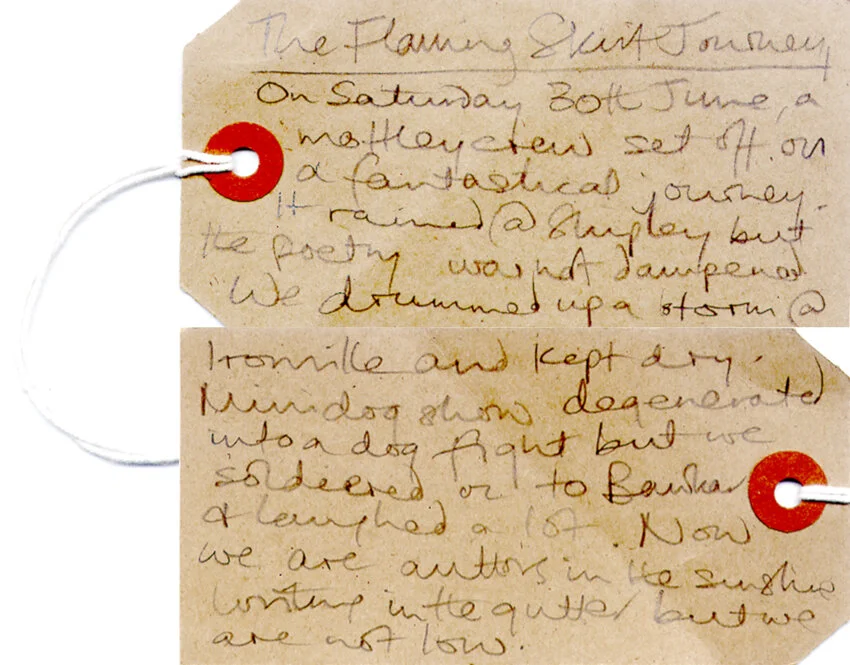 The Flaming Skirt Journey
On Saturday 30th June, a
mottley crew set off on
a fantastical journey.
It rained @ Shipley but
the poetry was not dampened
We drummed up a storm @
Ironville and kept dry.
Mini dog show degenerated
into a dog fight but we
soldiered on to
& laughed a lot. Now
we are authors in the sunshine
writing in the gutter but we
are not low.